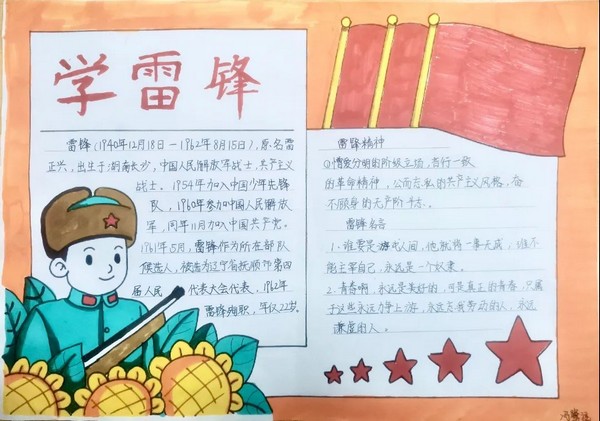 学雷锋
雷锋(1940年12月18日—1962年8月15日),原名雷
正兴,出生于湖南长沙,中国人民解放军战士,共产主义
战士。1954年加入中国少年先锋
队,1960年参加中国人民解放
军,同年11月加入中国共产党。
1961年5月,雷锋作为所在部队
候选人,被选为辽宁省抚顺市第四
届人民代表大会代表,1962年
雷锋殉职,年仅22岁。
雷锋精神
憎爱分明的阶级立场,言行一致
的革命精神,公而忘私的共产主义风格,奋
不顾身的无产阶
雷锋名言
1、谁要是游戏人间,他就将一事无成,谁不
能主宰自己,永远是一个奴隶。
2、青春啊,永远是美好的,可是真正的青春,只属
于这些永远力争上游,永远忘我劳动的人,永远
谦虚的人。
冯